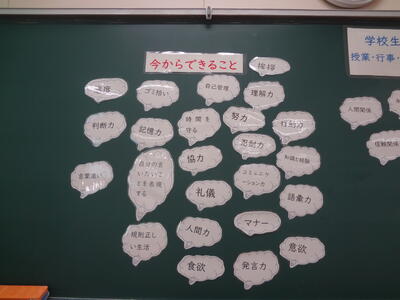 今からできること
挨拶
ゴミ拾い
自己管理
理解力
判断力
記憶力
時間を
守る
努力
行動力
忍耐力
協力
知識と経験
自分の言
いたいこ
とを表現
する
言葉遣い
コミュニケ
ーション力
礼儀
語彙力
マナー
人間力
規則正し
い生活
意欲
食欲
発言力
学校生
授業・行事・
人間関係
信頼関係